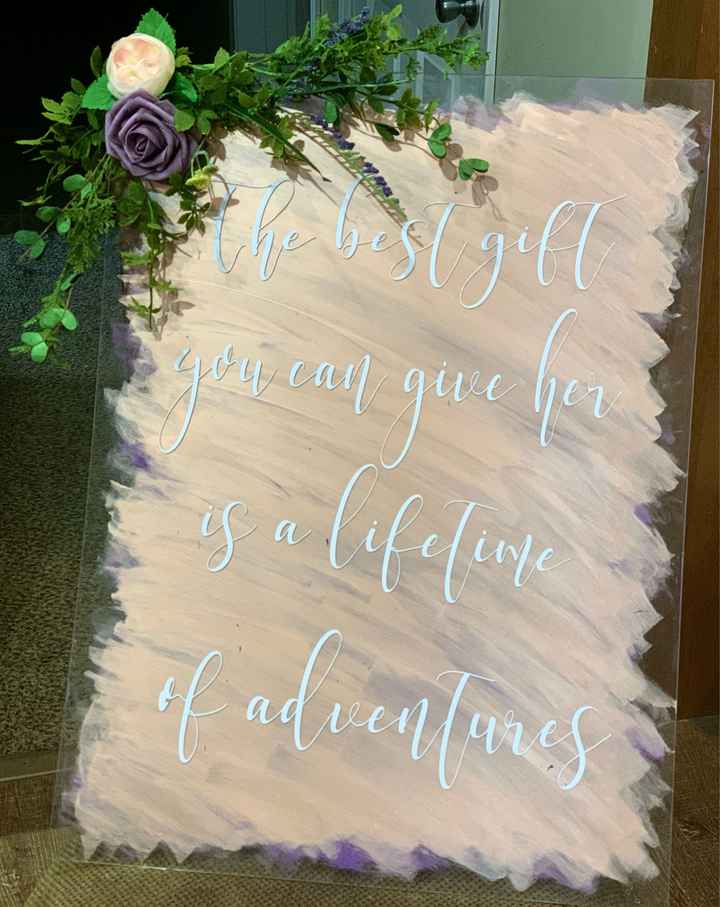 the best gift
you can give her
is a lifetime
of adventures